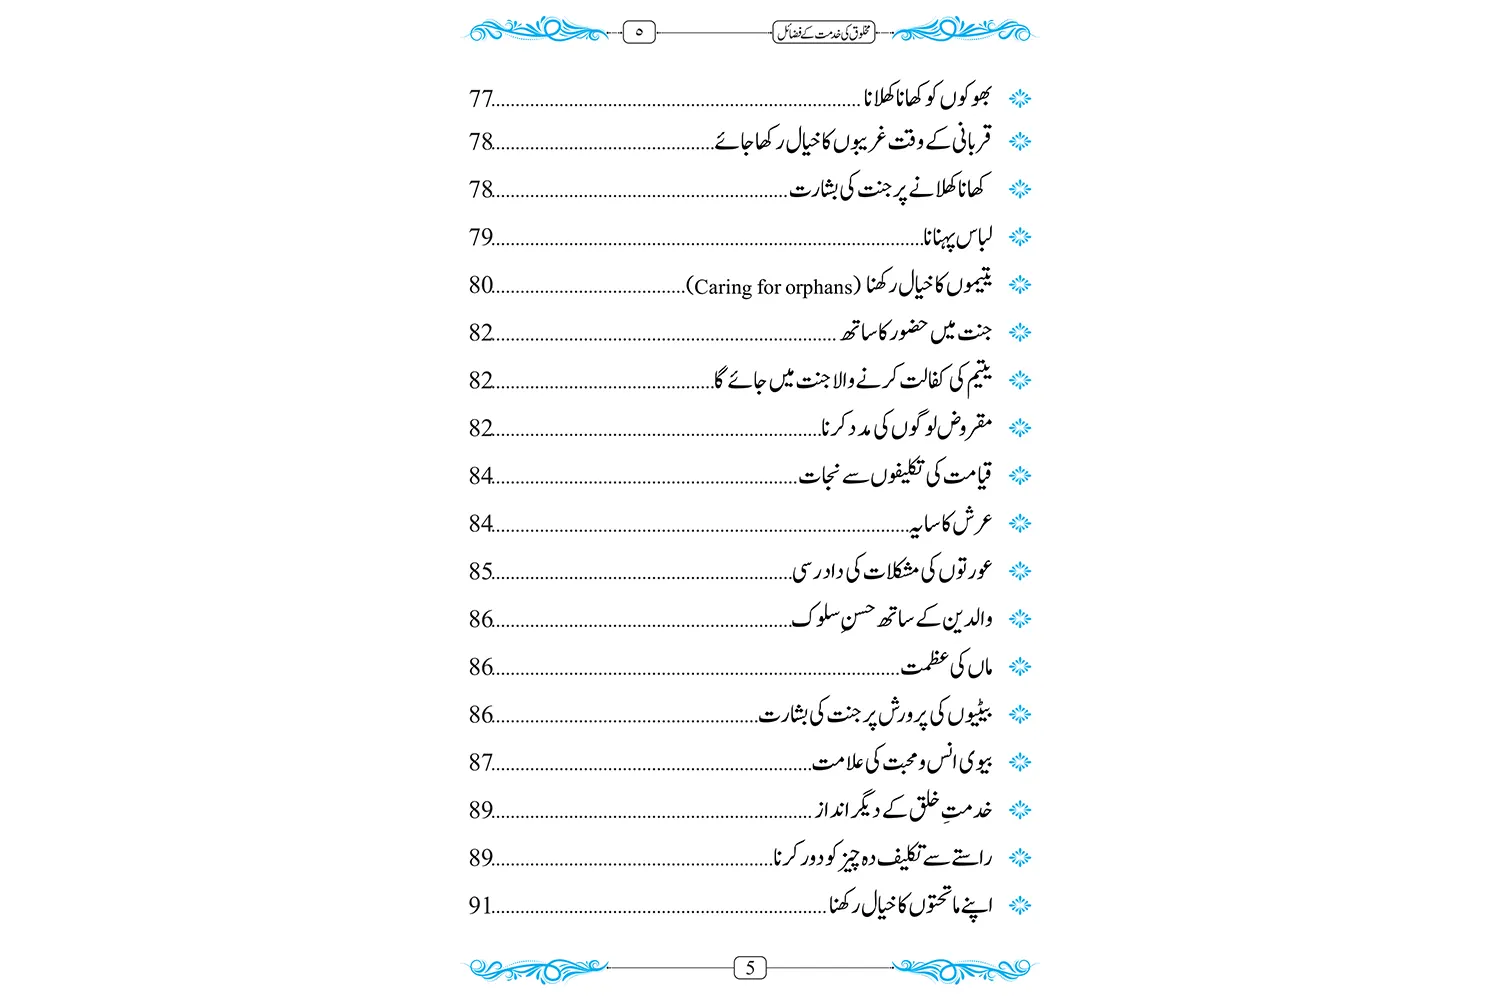 مخلوق کی خدمت کے فضائل ۵
بھوکوں کو کھانا کھلانا ........ 77
قربانی کے وقت غریبوں کا خیال رکھا جائے ........ 78
کھانا کھلانے پر جنت کی بشارت ........ 78
لباس پہنانا ........ 79
یتیموں کا خیال رکھنا (Caring for orphans) ........ 80
جنت میں حضور کا ساتھ ........ 82
یتیم کی کفالت کرنے والا جنت میں جائے گا ........ 82
مقروض لوگوں کی مدد کرنا ........ 82
قیامت کی تکلیفوں سے نجات ........ 84
عرش کا سایہ ........ 84
عورتوں کی مشکلات کی داد رسی ........ 85
والدین کے ساتھ حسنِ سلوک ........ 86
ماں کی عظمت ........ 86
بیٹیوں کی پرورش پر جنت کی بشارت ........ 86
بیوی انس و محبت کی علامت ........ 87
خدمتِ خلق کے دیگر انداز ........ 89
راستے سے تکلیف دہ چیز کو دور کرنا ........ 89
اپنے ماتحتوں کا خیال رکھنا ........ 91
5